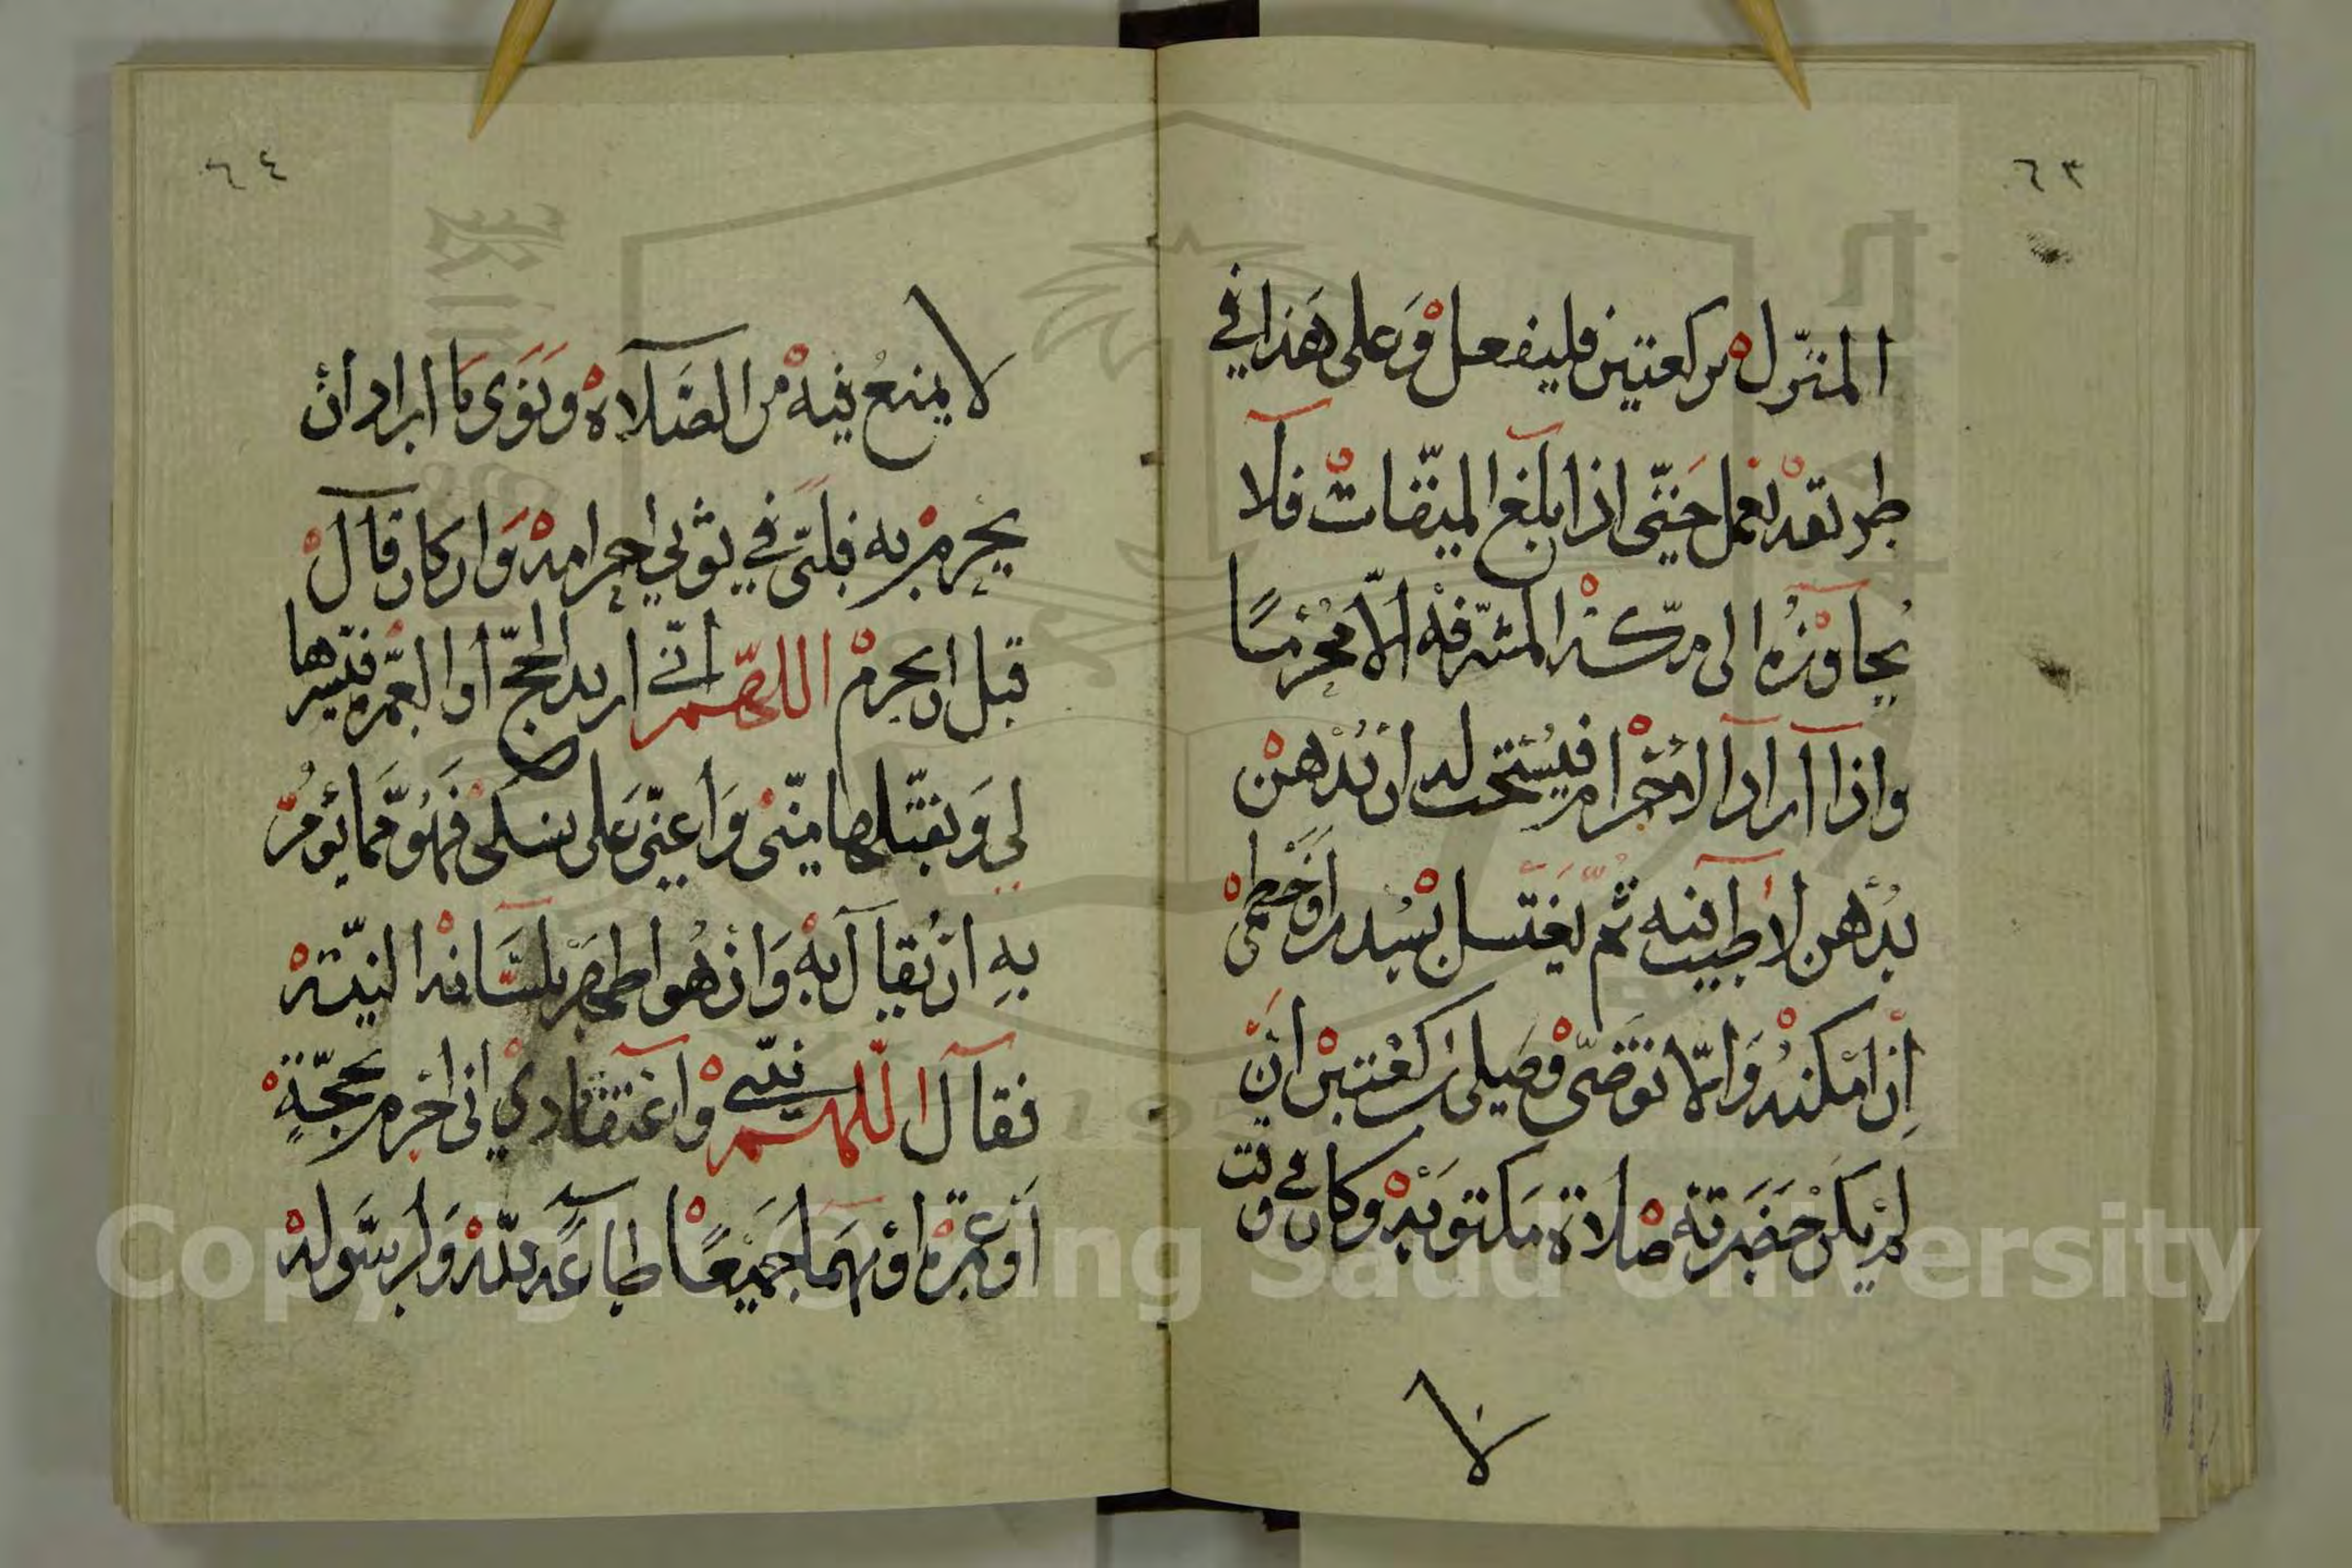 ٦٣
المنزل ركعتين فليفعل وعلى هذا في
طريقه يعمل حتى اذا بلغ الميقات فلا
يجاوزه الى مكة المشرفة الا محرما
واذا اراد الاحرام فيستحب له ان يدهن
بدهن لا طيب فيه ثم يغتسل بسدر او خطمي
إن امكنه والا توضى وصلى ركعتين ان
لم يكن حضرته صلاة مكتوبه وكان في وقت
لا
٦٤
لا يمنع فيه من الصلاة ونوى ما اراد أن
يحرم به فلبى في ثوبي احرامه وان كان قال
قبل ان يحرم اللهم اني اريد الحج أو العمره فيسرها
لي وتقبلها مني وأعني على نسكي فهو مما يؤمر
به ان يقال به وان هو اظهر بلسانه النية
فقال اللهم نيتي واعتقادي اني احرم بحجة
أو عمرة او بهما جميعا طاعة لله ولرسوله
Copyright © King Saud University